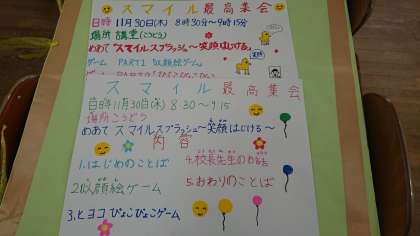 スマイル最高集会
日時 11月30日(木) 8時30分～9時15分
場所 講堂(こうどう)
めあて "スマイルスプラッシュ～笑顔はじける～
ゲーム PART1 似顔絵ゲーム
スマイル最高集会
日時11月30日(木) 8:30～9:15
場所こうどう
めあて スマイルスプラッシュ～笑顔はじける～
内容
1.はじめのことば
2.似顔絵ゲーム
3.ヒヨコぴょこぴょこゲーム
4.校長先生のお話
5.おわりのことば